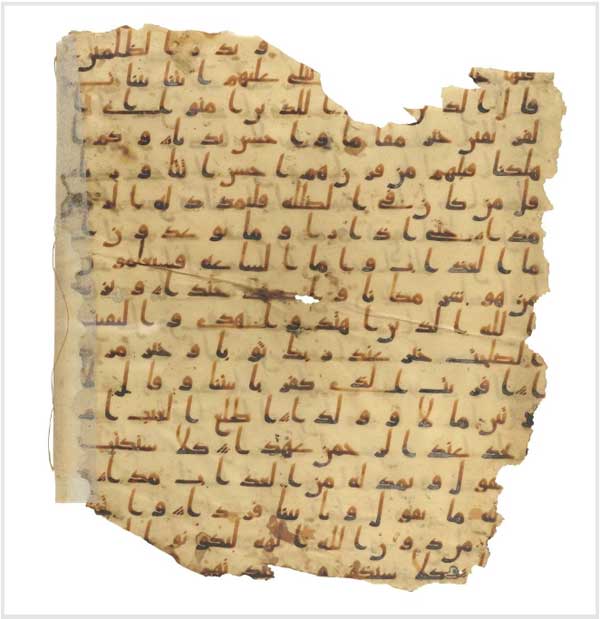 و نذر الظلمين
فيها تتلى عليهم ايتنا بينت
قال الذ للذين امنوا اي ا
لفريقين خير مقاما واحسن نديا وكم ا
هلكنا قبلهم من قرن هم احسن اثثا و ر
قل من كان في الضللة فليمدد له الر
مدا حتى اذا راوا ما يوعدون ا
ما العذاب واما الساعة فسيعلمون
من هو شر مكانا و جندا ويز
الله الذين اهتدوا هدى والبقيت
الصلحت خير عند ربك ثوابا وخير مر
ا افريت الذي كفر بايتنا وقال
تين مالا وولدا اطلع الغيب ا
خذ عند الرحمن عهدا كلا سنكتب
يقول ونمد له من العذاب مدا
ثه ما يقول وياتينا فردا وا
من دون الله الهة ليكونو
كلا سيكفرو